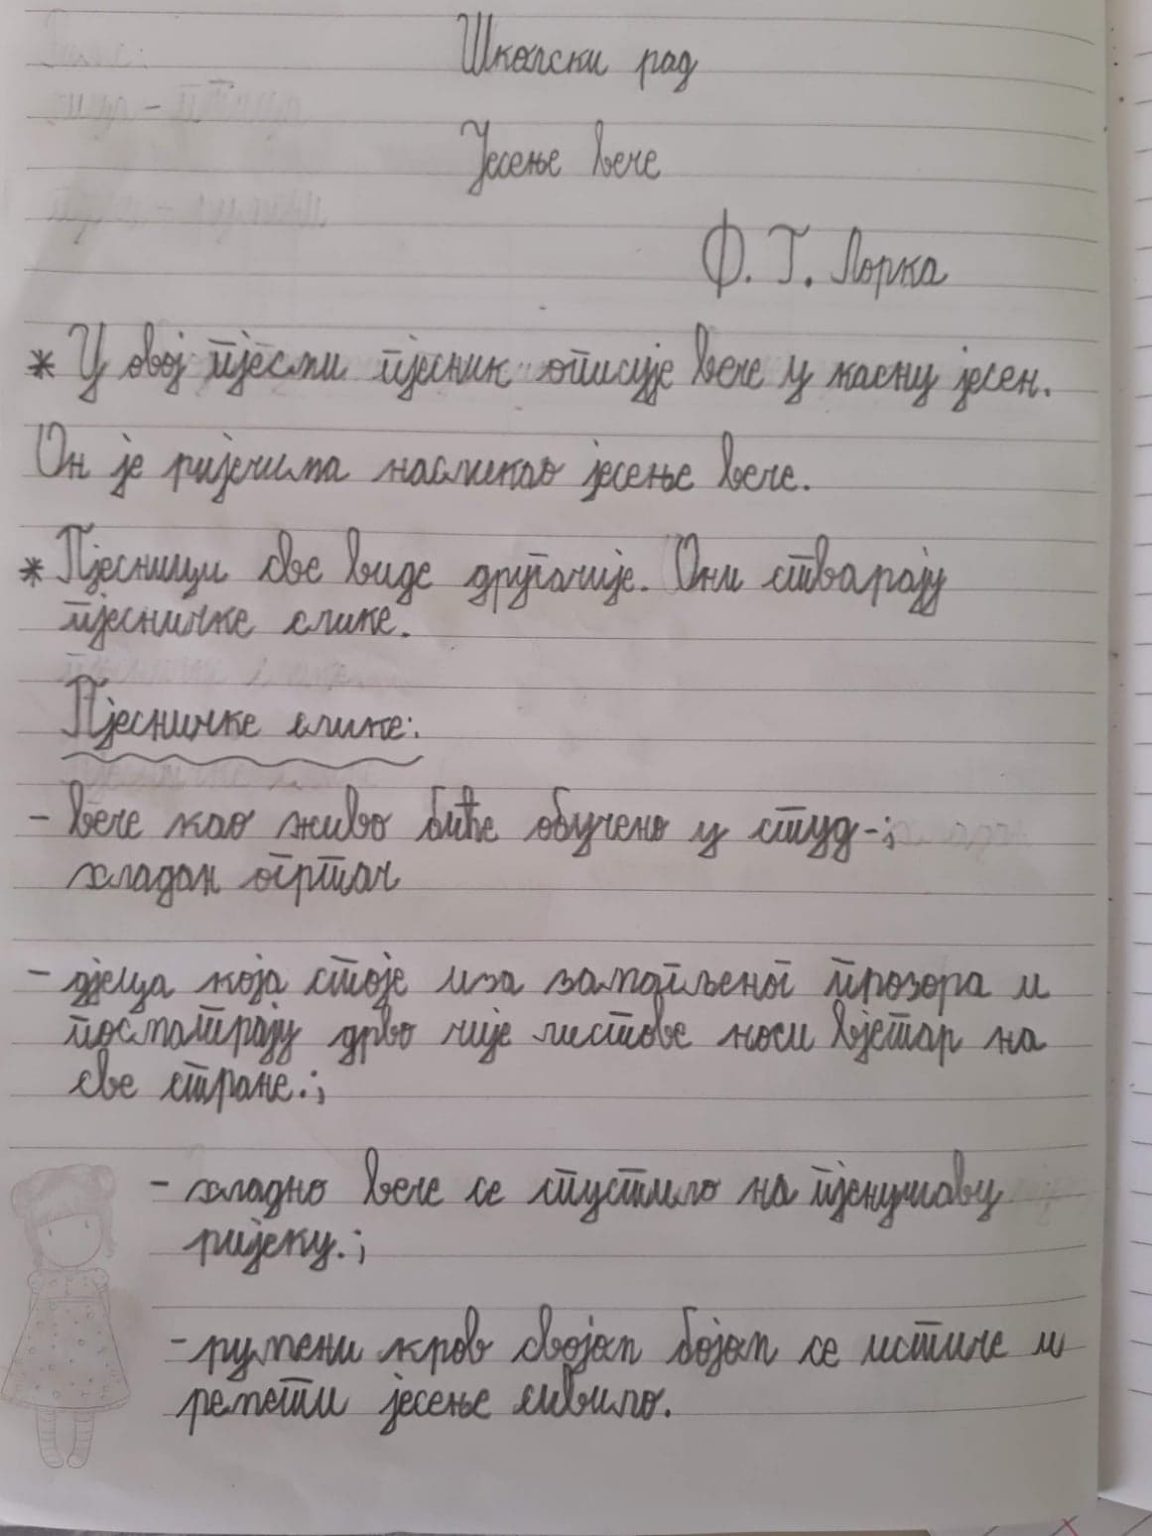 Школски рад
Јесење вече
Ф. Г. Лорка
* У овој пјесми пјесник описује вече у касну јесен.
Он је ријечима насликао јесење вече.
* Пјесници све виде другачије. Они стварају
пјесничке слике.
Пјесничке слике:
- вече као живо биће обучено у студ-;
хладан огртач
- дјеца која стоје иза замагљеног прозора и
посматрају дрво чије листове носи вјетар на
све стране.;
- хладно вече се спустило на пјенушаву
ријеку.;
- румени кров својом бојом се истиче и
ремети јесење сивило.